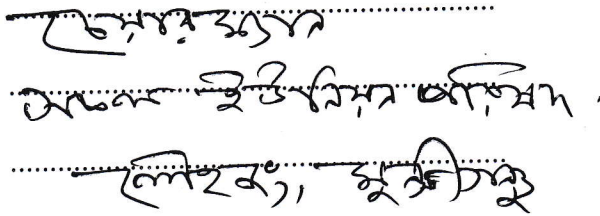 চেয়ারম্যান
ইউনিয়ন পরিষদ
লৌহজং, মুন্সীগঞ্জ